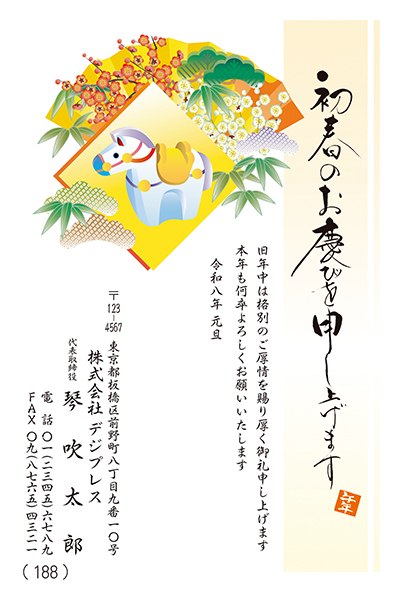 初春のお慶びを申し上げます
午年
旧年中は格別のご厚情を賜り厚く御礼申し上げます
本年も何卒よろしくお願いいたします
令和八年 元旦
〒123-4567
東京都板橋区前野町八丁目九番一〇号
株式会社デジプレス
代表取締役 琴吹太郎
電話〇一(二三四五)六七八九
FAX〇九(八七六五)四三二一
(188)